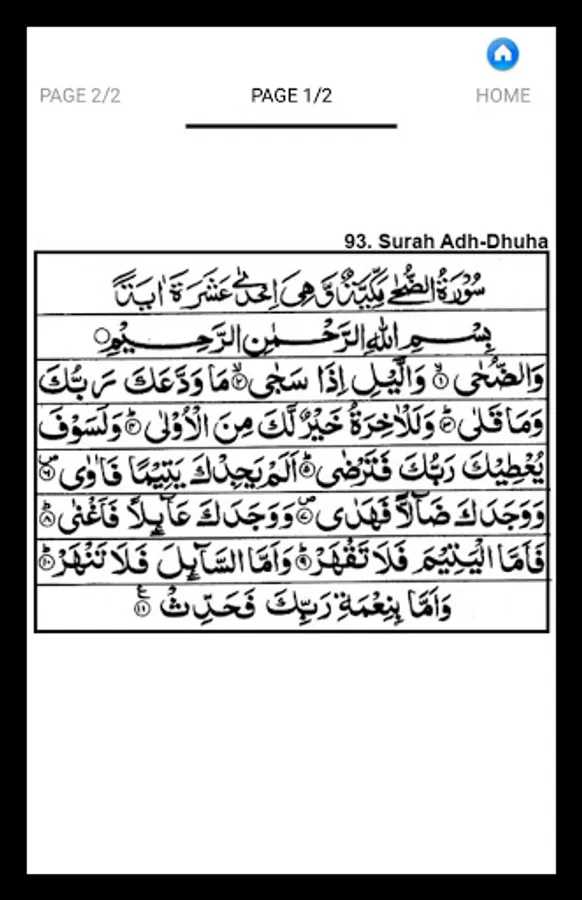 PAGE 2/2 PAGE 1/2 HOME
93. Surah Adh-Dhuha
سُوْرَةُ الضُّحٰى مَكِّيَّةٌ وَّهِيَ اِحْدٰى عَشَرَةَ اٰيَةً
بِسْمِ اللهِ الرَّحْمٰنِ الرَّحِيْمِ ○
وَالضُّحٰى ۙ﴿۱﴾ وَالَّيْلِ اِذَا سَجٰى ۙ﴿۲﴾ مَا وَدَّعَكَ رَبُّكَ
وَمَا قَلٰى ؕ﴿۳﴾ وَلَلْاٰخِرَةُ خَيْرٌ لَّكَ مِنَ الْاُوْلٰى ؕ﴿۴﴾ وَلَسَوْفَ
يُعْطِيْكَ رَبُّكَ فَتَرْضٰى ؕ﴿۵﴾ اَلَمْ يَجِدْكَ يَتِيْمًا فَاٰوٰى ۪﴿۶﴾
وَوَجَدَكَ ضَآلًّا فَهَدٰى ۪﴿۷﴾ وَوَجَدَكَ عَآىِٕلًا فَاَغْنٰى ؕ﴿۸﴾
فَاَمَّا الْيَتِيْمَ فَلَا تَقْهَرْ ؕ﴿۹﴾ وَاَمَّا السَّآىِٕلَ فَلَا تَنْهَرْ ؕ﴿۱۰﴾
وَاَمَّا بِنِعْمَةِ رَبِّكَ فَحَدِّثْ ﴿۱۱﴾ ع